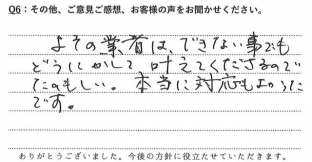 Q6：その他、ご意見ご感想、お客様の声をお聞かせください。
よその業者は、できない事でも
どうにかして 叶えてくださるので
たのもしい。本当に対応もよかった
です。
ありがとうございました。今後の方針に役立たせていただきます。